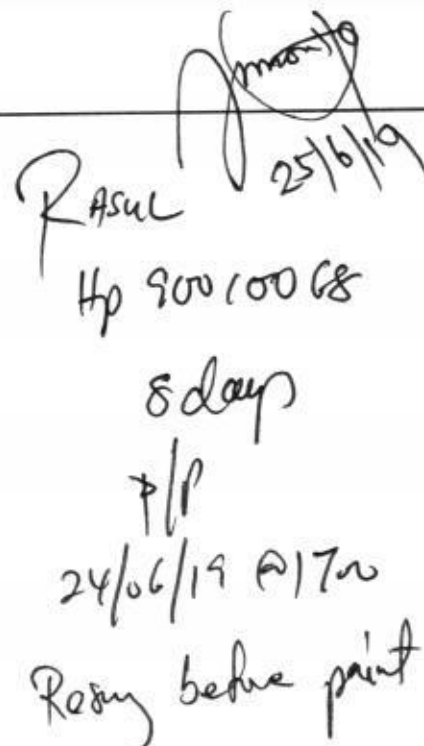 25/6/19
RASUL
Hp 90010068
8 days
P/P
24/06/19 @1700
before paint